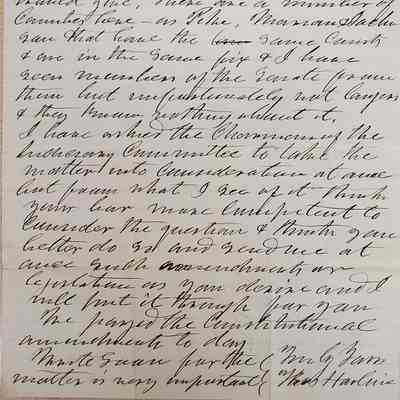 would give, There are a number of
Counties here — as Pike, Marion &
have the same Court
& are in the same fix & I have
seen members of the Senate from
them but unfortunately not lawyers
& they know nothing about it.
I have asked the Chairman of the
Judiciary Committee to take the
matter into consideration at once
but from what I see of it think
your bar more competent to
consider the question & think you
better do so and send me at
once such amendments or
legislation as you desire and I
will put it through for you
We passed the Constitutional
amendments to day.
Write soon for the
matter is very important